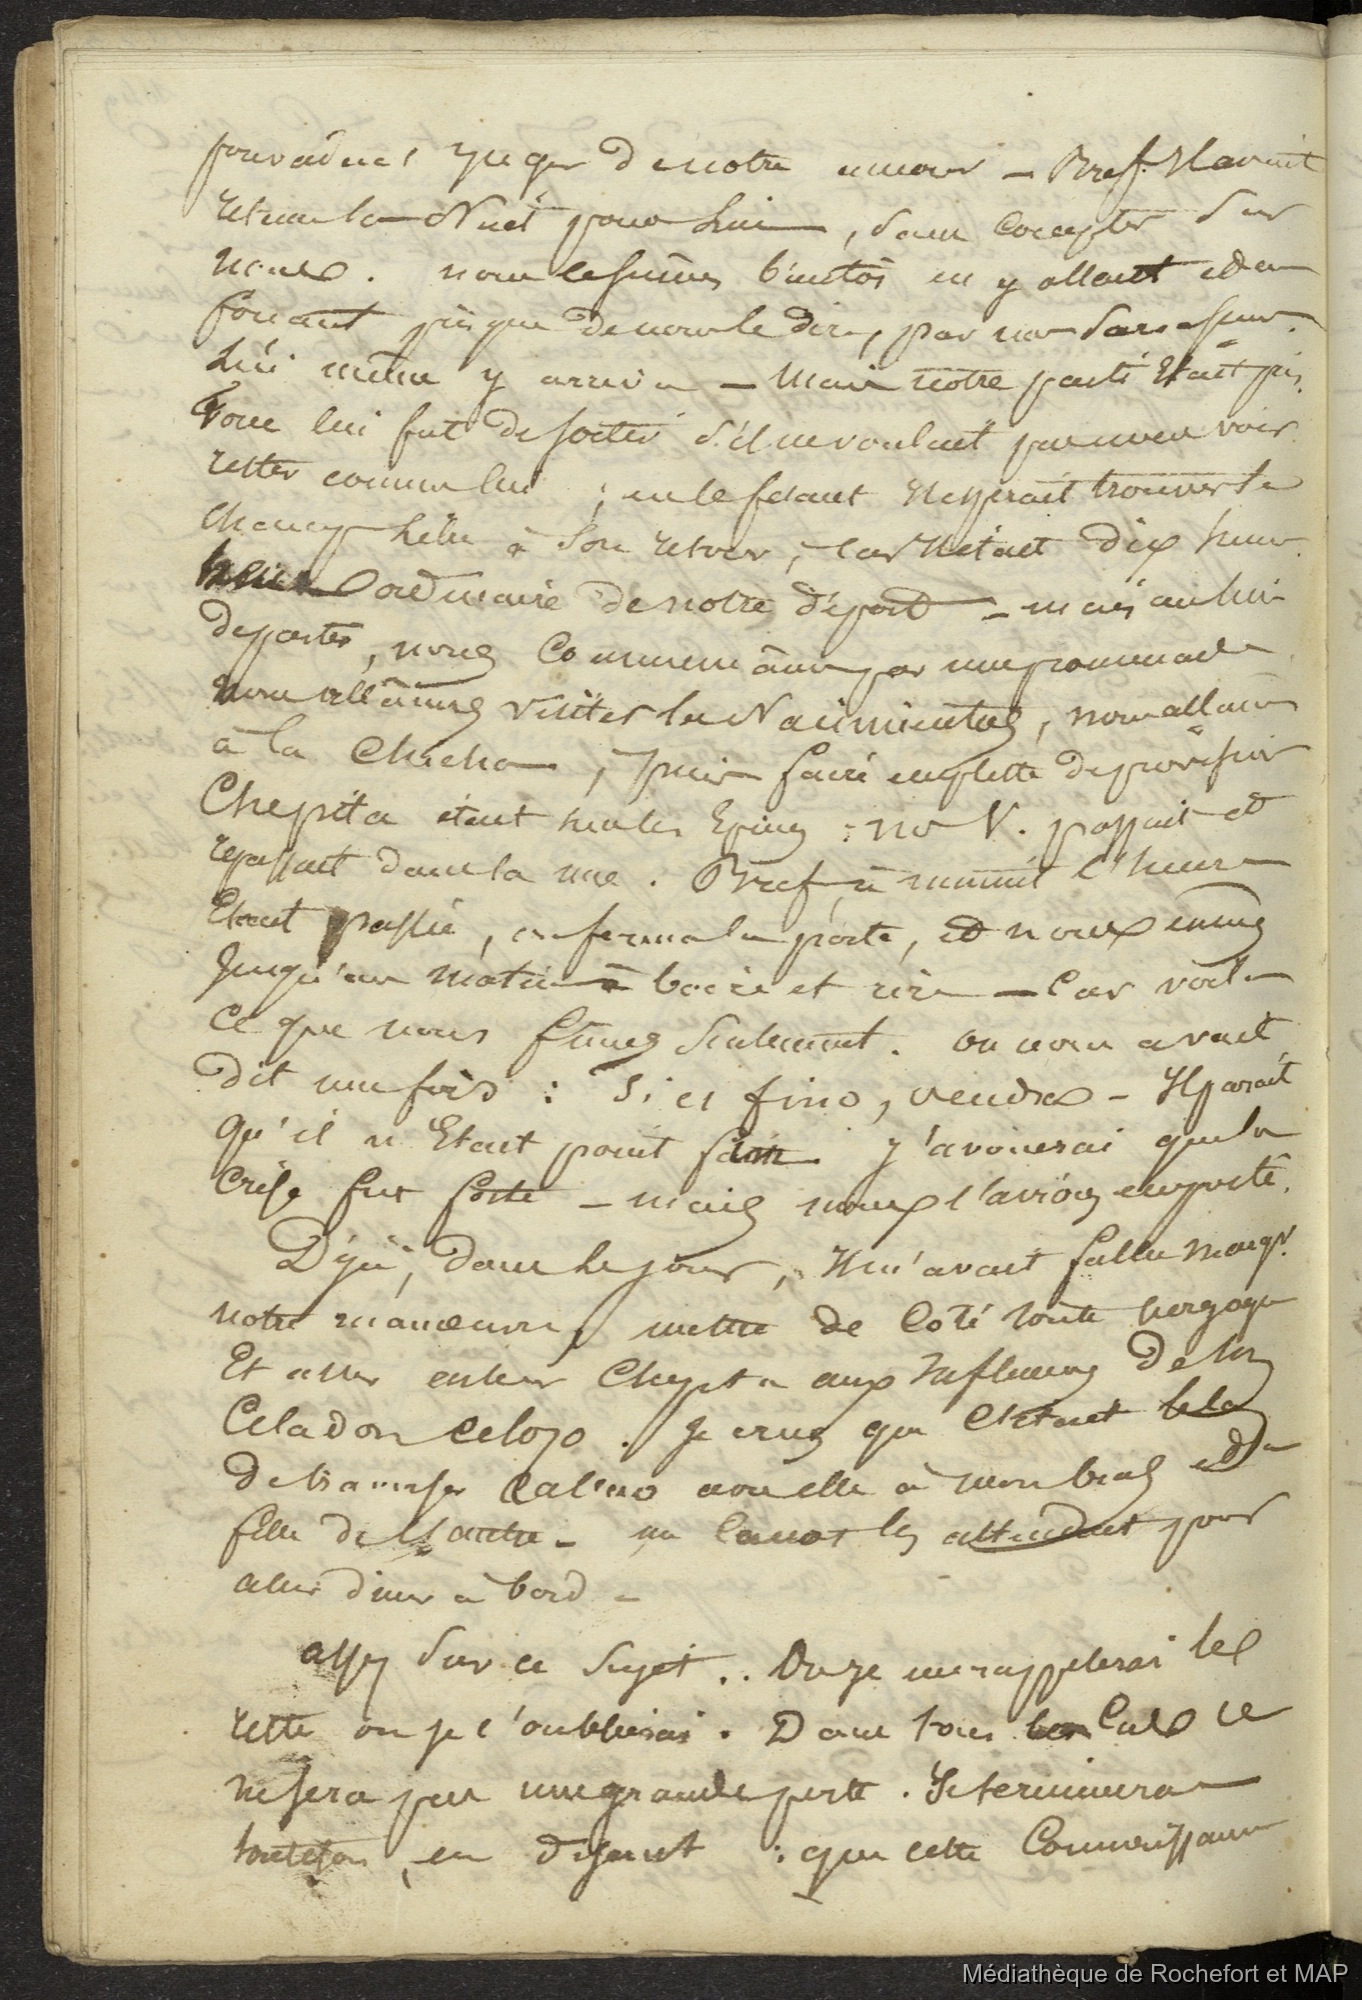 pouvaient juger de notre amour — Bref. Il avait
retenu la Nuit pour lui, sans compter sur
nous. nous le sumes bientôt en y allant et en
forçant de nous le dire, par
Lui même y arriva — Mais notre parti était pris.
Force lui fut de sortir s'il ne voulait pas nous voir
rester comme lui ; en le fesant Il espérait trouver le
champ libre à son retour, car Il était dix heures
ordinaire de notre départ — mais au lieu
de partir, nous commençâmes par une promenade
nous allâmes visiter les Nacimientos, nous allâmes
à la Chicha, puis faire emplette de provisions
Chepita étant sur les Epines : no V. passait et
repassait dans la rue. Bref, à minuit l'heure
Etant passée, on ferma la porte, et nous eûmes
jusqu'au matin à boire et rire — Car voilà
ce que nous fîmes seulement. on nous avait
dit une fois : Si es fino, vendra — Il paraît
qu'il n'Etait point fino j'avouerai que la
crise fut forte — mais nous l'avions emporté.
Déjà, dans le jour, Il m'avait fallu manqr.
notre manoeuvre, mettre de coté toute vergogne
Et aller enlever Chepita aux Influences de son
Celadon celozo. Je crus que c'était beau
de traverser Callao avec elle à mon bras et la
fille de l'autre — un canot les attendait pour
aller diner à bord —
assez sur ce sujet .. Ou je me rappelerai le
reste ou je l'oublierai. Dans tous les Cas ce
ne sera pas une grande perte. Je terminerai
toutefois, en disant : que cette Connaissance
Médiathèque de Rochefort et MAP